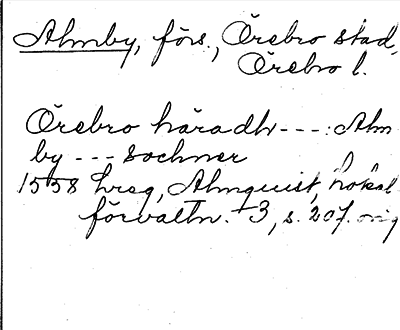 Almby, förs., Örebro stad,
Örebro l.
Örebro häradh ---: Alm
by --- sochner
1558 hreg, Almquist, Lokal
förvaltn. +3, s. 207. orig